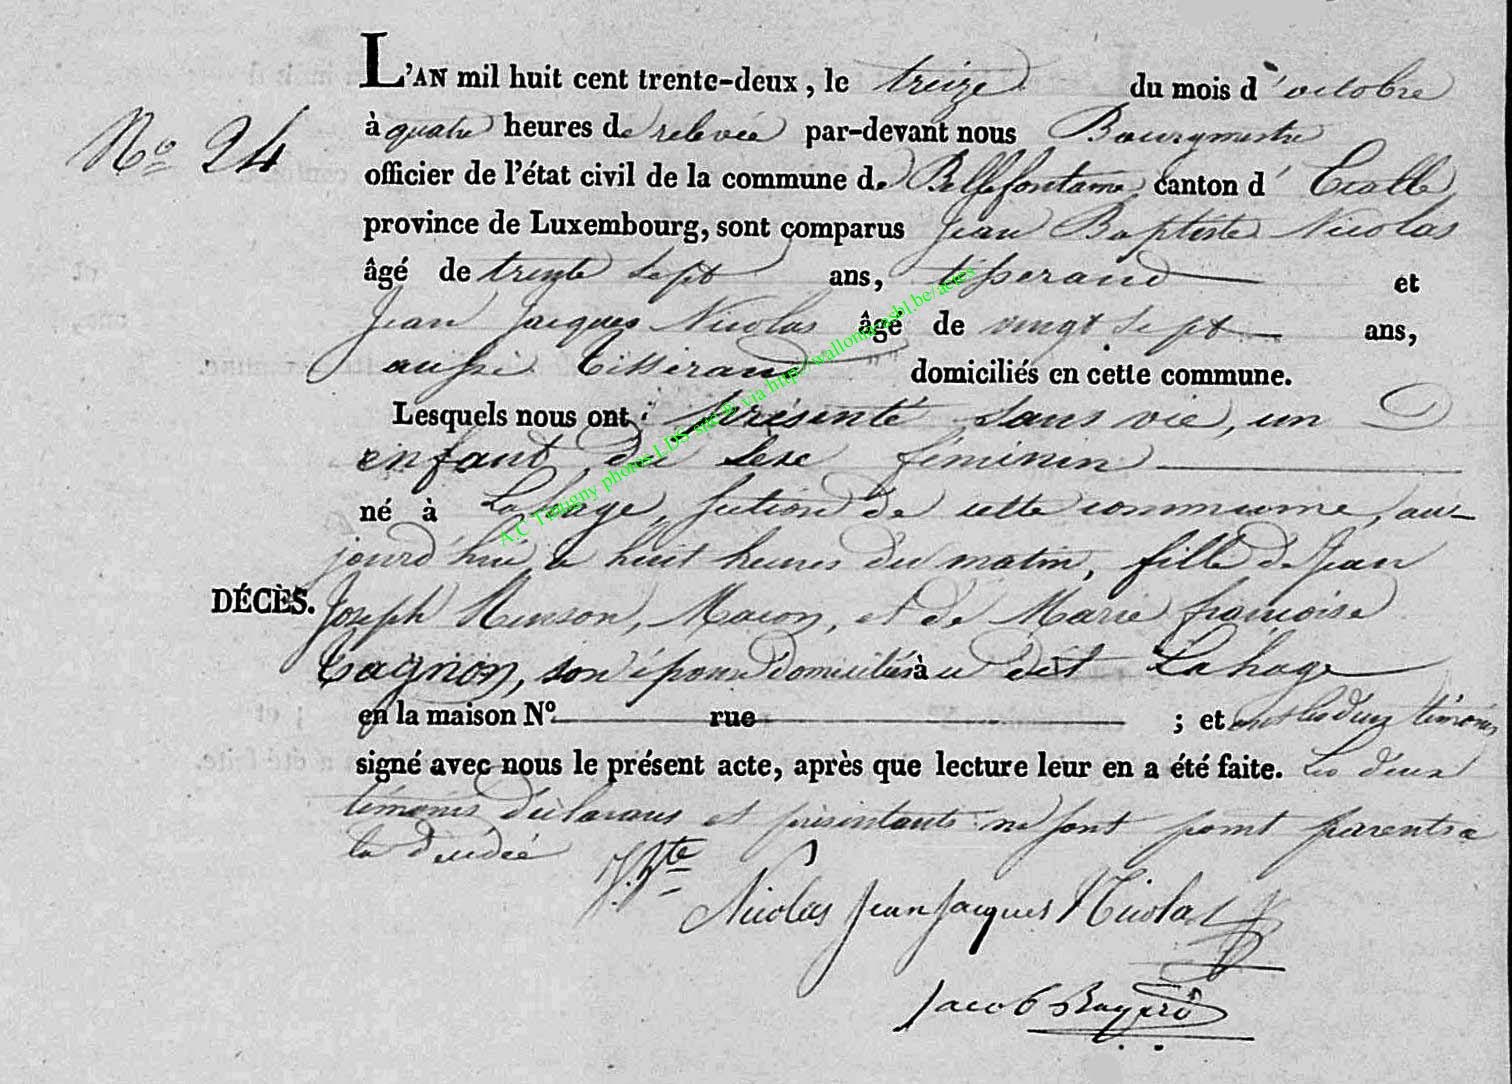 L'AN mil huit cent trente-deux, le treize du mois d'octobre
No 24
à quatre heures de relevée par-devant nous Bourgmestre
officier de l'état civil de la commune de Bellefontaine, canton d'Etalle
province de Luxembourg, sont comparus Jean Baptiste Nicolas
âgé de trente sept ans, tisserand et
Jean Jacques Nicolas âgé de vingt sept ans,
aussi tisserand domiciliés en cette commune.
Lesquels nous ont présenté sans vie, un
enfant du sexe féminin
né à Lahage, section de cette commune, au-
jourd'hui à huit heures du matin, fille de Jean
DÉCÈS.
Joseph Husson, Macon, et de Marie françoise
son épouse domiciliés à u dit Lahage
en la maison No. rue ; et ont les deux témoins
signé avec nous le présent acte, après que lecture leur en a été faite. Les deux
témoins déclarans et présentants ne sont point parents a
la décédée
J. Bte
Nicolas Jean Jacques Nicolas
Jacob
A.C Tintigny photos LDS sur © via http://wallonia-asbl.be/actes